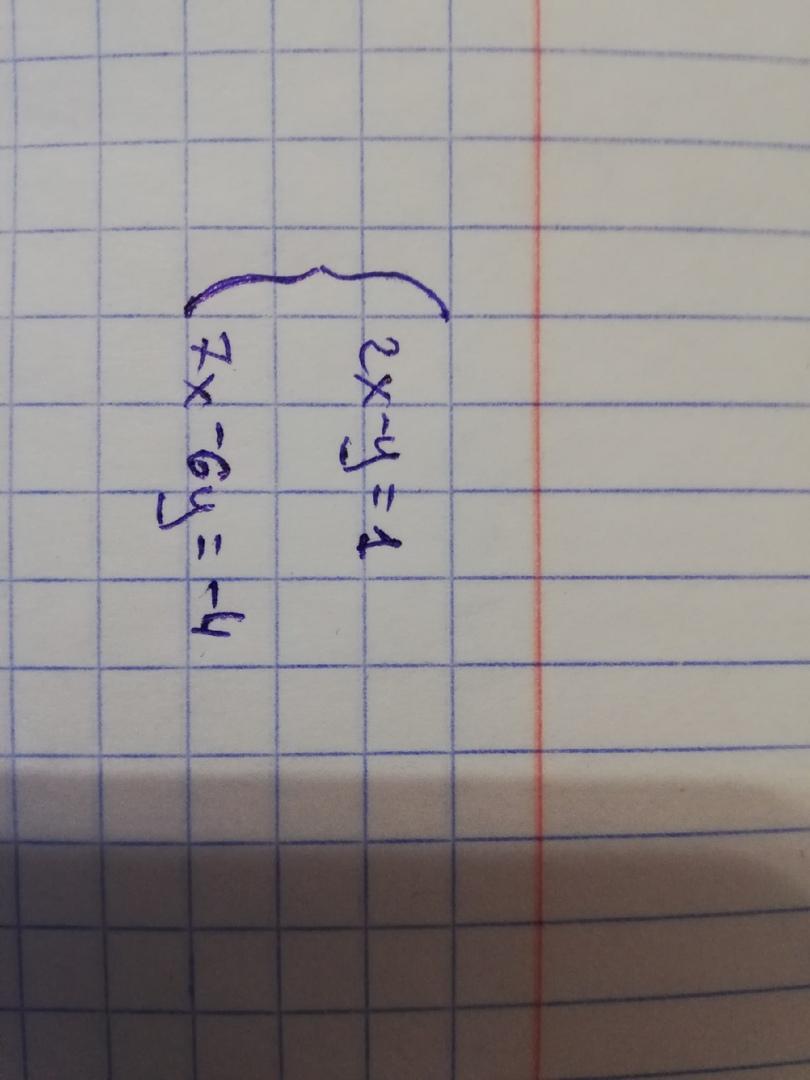 2x-y=1
7x-6y=-4